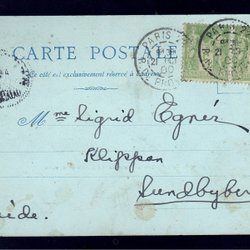 CARTE POSTALE
Ce côté est exclusivement réservé à
PARIS
Mme Sigrid Egnér
Klippan
Sundbyber
ède.